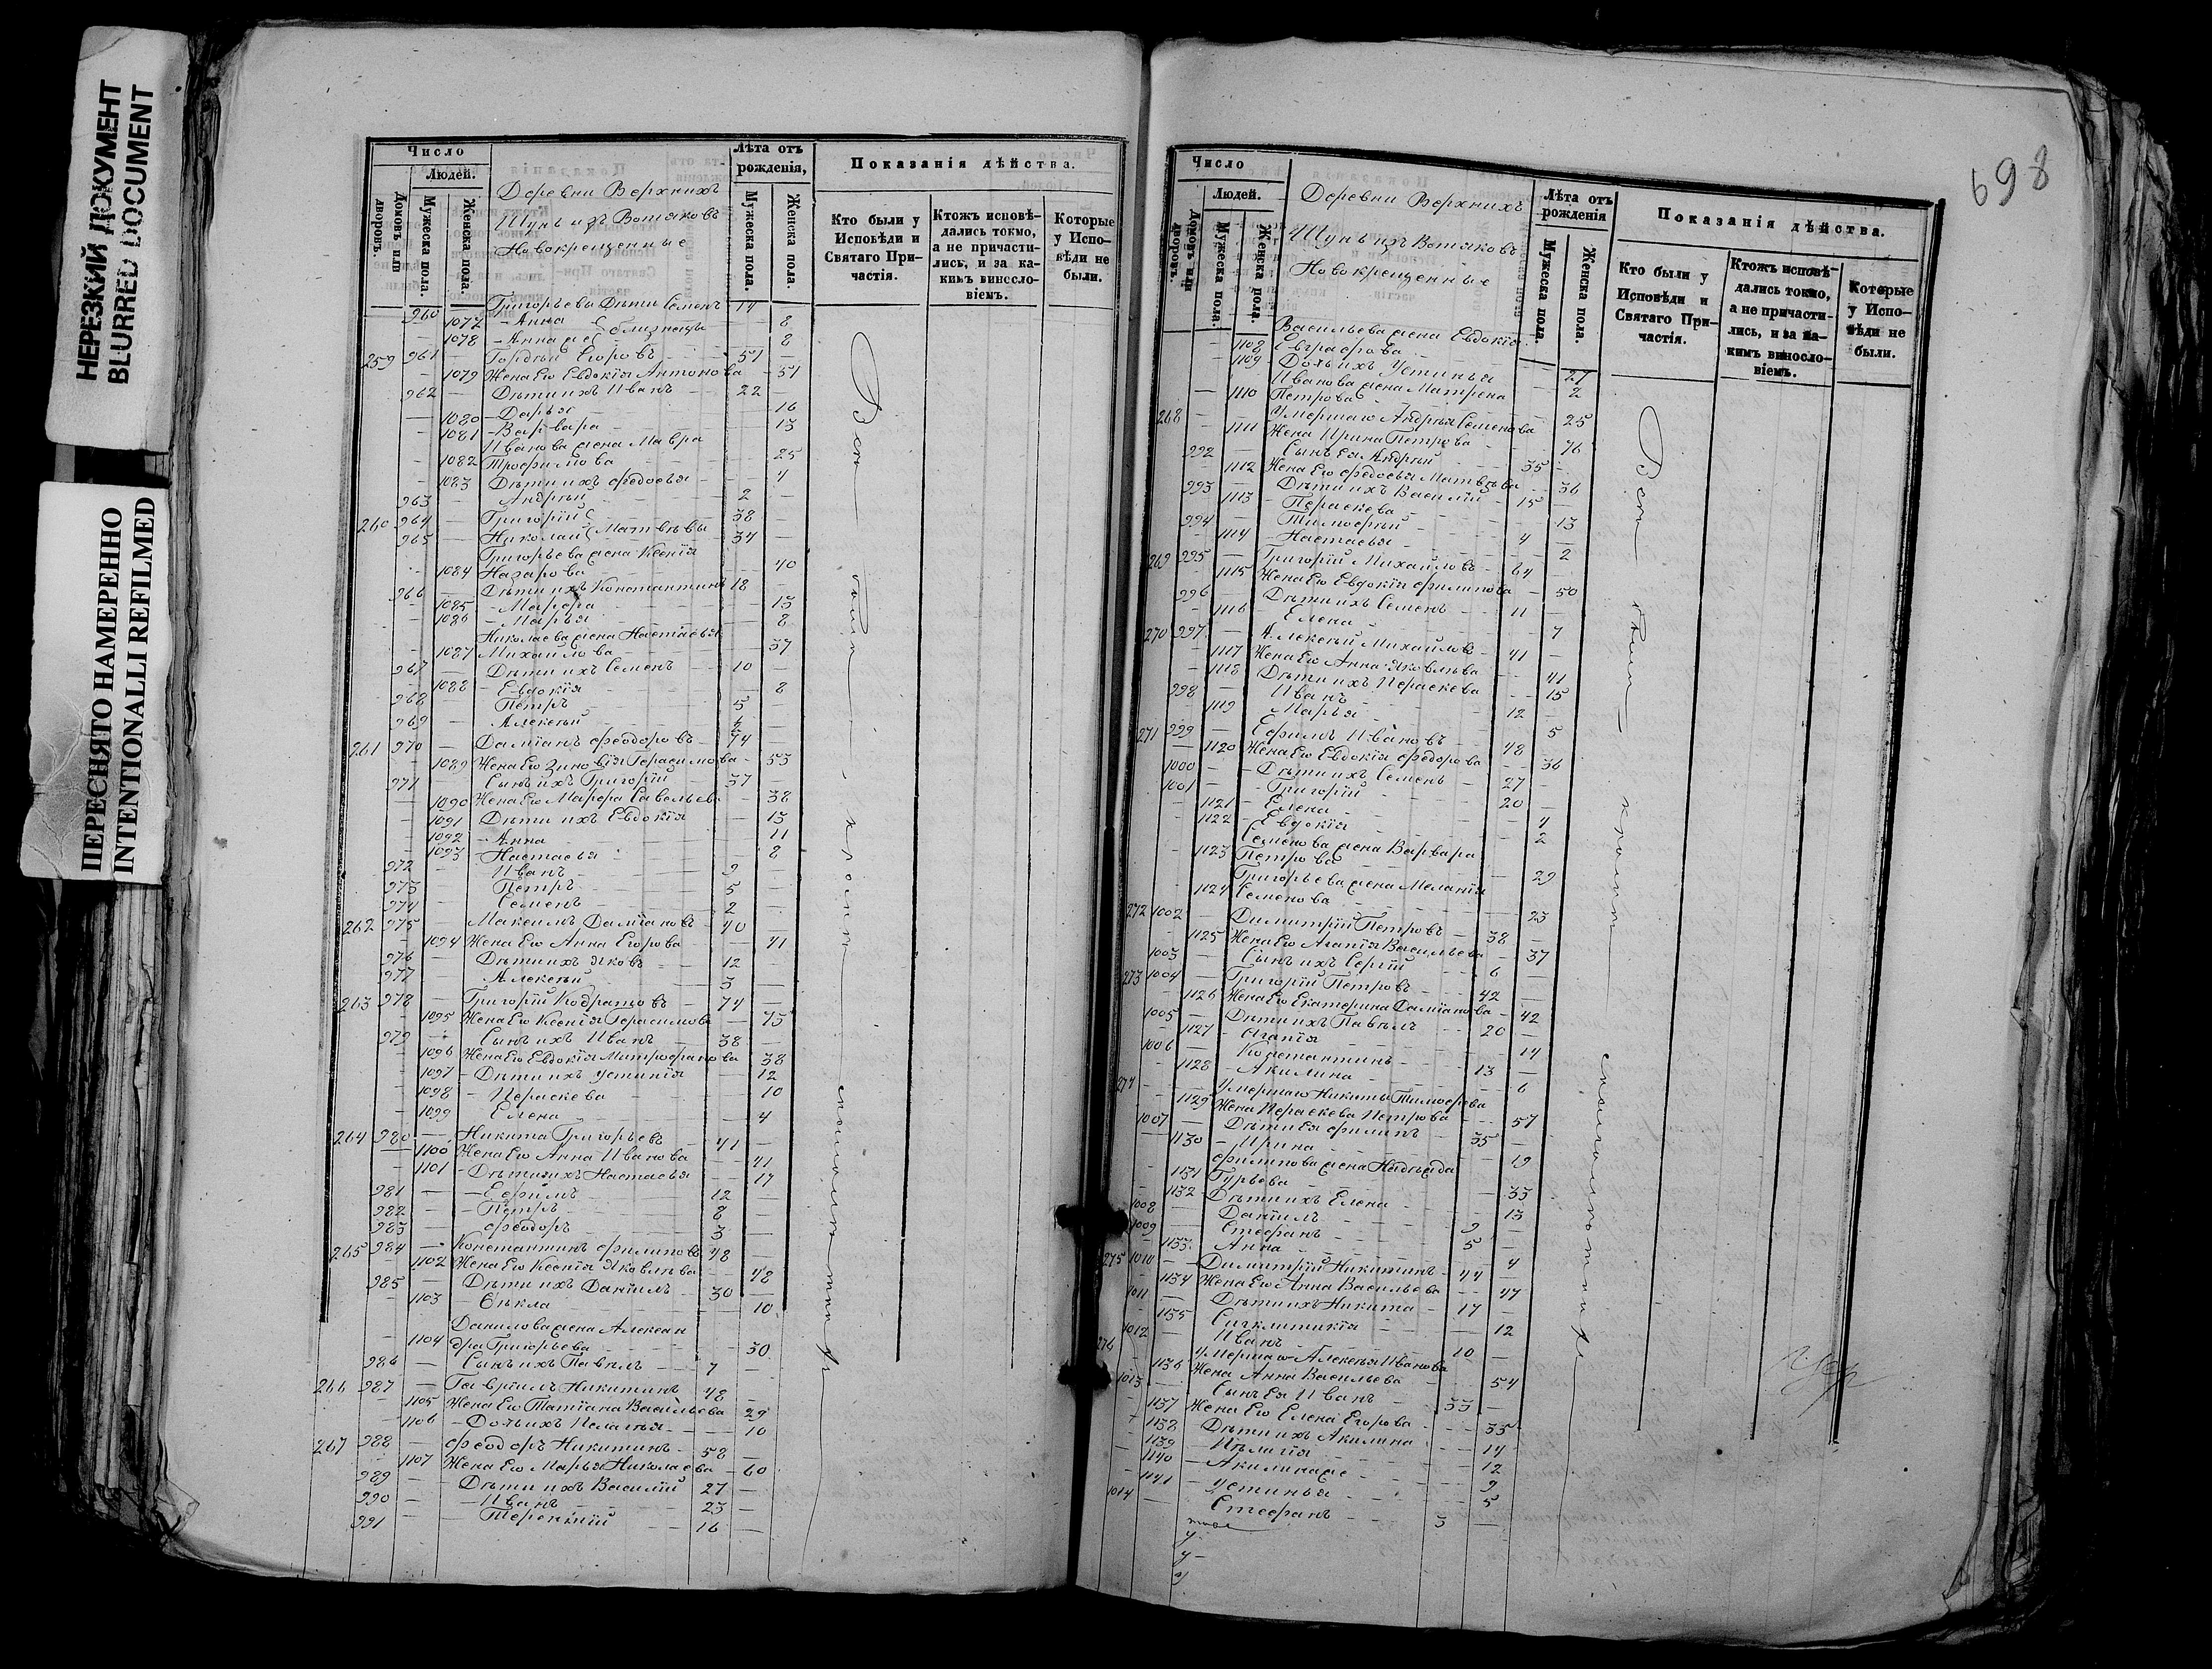 НЕРЕЗКИЙ ДОКУМЕНТ
BLURRED DOCUMENT
ПЕРЕСНЯТО НАМЕРЕННО
INTENTIONALLI REFILMED
Число
Людей.
Домовъ или дворовъ.
Мужеска пола.
Женска пола.
Деревни Верхнихъ
Шунь изъ Вотяковъ
Новокрещенные
Лѣта отъ рожденія,
Мужеска пола.
Женска пола.
Показанія дѣйства.
Кто были у Исповѣди и Святаго Причастія.
Ктожъ исповѣдались токмо, а не причастились, и за какимъ винословіемъ.
Которые у Исповѣди не были.
960 — Григорьева Дѣти Семенъ 14
1077 – Анна близнецы 8
1078 – Анна же 8
259 961 — Гордѣй Егоровъ 51
1079 Жена Его Евдокія Антонова 51
962 — Дѣти ихъ Иванъ 22
1080 – Дарья 16
1081 – Варвара 13
Иванова жена Мавра
1082 Трофимова 25
1083 Дѣти ихъ Федосья 4
963 — Андрей 2
260 964 — Григорій 38
965 — Николай Матвѣевы 34
Григорьева жена Ксенія
1084 Назарова 40
966 — Дѣти ихъ Константинъ 18
1085 – Марфа 13
1086 – Марья 8
Николаева жена Настасья
1087 Михайлова 37
967 — Дѣти ихъ Семенъ 10
1088 – Евдокія 8
968 Петръ 5
969 — Алексѣй
261 970 — Даміанъ Феодоровъ 74
1089 Жена Его Зиновія Герасимова 53
971 Сынъ ихъ Григорій 37
1090 Жена Его Марфа Савельева 38
1091 Дѣти ихъ Евдокія 13
1092 – Анна 11
1093 – Настасья 8
972 — Иванъ 9
973 Петръ 5
974 — Семенъ 2
262 975 Максимъ Даміановъ 40
1094 Жена Его Анна Егорова 41
976 — Дѣти ихъ Яковъ 12
977 — Алексѣй 3
263 978 — Григорій Кодратовъ 74
1095 Жена Его Ксенія Герасимова 75
979 — Сынъ ихъ Иванъ 38
1096 Жена Его Евдокія Митрофанова 38
1097 – Дѣти ихъ Устинія 12
1098 – Пераскева 10
1099 Елена 4
264 980 — Никита Григорьевъ 41
1100 Жена Его Анна Иванова 41
1101 – Дѣти ихъ Настасья 17
981 — – Ефимъ 12
982 — – Петръ 8
983 — Феодоръ 3
265 984 — Константинъ Филиповъ 48
1102 Жена Его Ксенія Яковлѣва 48
985 — Дѣти ихъ Даніилъ 30
1103 Ѳекла 10
Данилова жена Алексан
1104 дра Григорьева 30
986 — Сынъ ихъ Павѣлъ 7
266 987 — Гавріилъ Никитинъ 48
1105 Жена Его Татіана Васильева 29
1106 – Дочь ихъ Пелагѣя 10
267 988 — Феодоръ Никитинъ 58
1107 Жена Его Марья Николаева 60
989 — Дѣти ихъ Василій 27
990 — – Иванъ 23
991 — – Терентій 16
698
Число
Людей.
Домовъ или дворовъ.
Мужеска пола.
Женска пола.
Деревни Верхнихъ
Шунь изъ Вотяковъ
Новокрещенные
Лѣта отъ рожденія
Мужеска пола.
Женска пола.
Показанія дѣйства.
Кто были у Исповѣди и Святаго Причастія.
Ктожъ исповѣдались токмо, а не причастились, и за какимъ винословіемъ.
Которые у Исповѣди не были.
Васильева жена Евдокія
1108 Евграфова 27
1109 – Дочь ихъ Устинья 2
Иванова жена Матрена
1110 Петрова 25
268 Умершаго Андрея Семенова
1111 Жена Ирина Петрова 76
992 — Сынъ Ея Андрей 35
1112 Жена Его Федосья Матвѣева 36
993 — Дѣти ихъ Василій 15
1113 – Пераскева 13
994 — Тимофей 4
1114 Настасья 2
269 995 — Григорій Михайловъ 64
1115 Жена Его Евдокія Филипова 50
996 Дѣти ихъ Семенъ 11
1116 Елена 7
270 997 — Алексѣй Михайловъ 41
1117 Жена Его Анна Яковлѣва 41
1118 Дѣти ихъ Пераскева 15
998 — Иванъ 12
1119 Марья 5
271 999 — Ефимъ Ивановъ 48
1120 Жена Его Евдокія Федорова 36
1000 — – Дѣти ихъ Семенъ 27
1001 — – Григорій 20
1121 – Елена 4
1122 – Евдокія 2
Семенова жена Варвара
1123 Петрова 29
Григорьева жена Меланія
1124 Семенова 23
272 1002 — Димитрій Петровъ 38
1125 Жена Его Агапія Васильева 37
1003 — Сынъ ихъ Сергій 6
273 1004 — Григорій Петровъ 42
1126 Жена Его Екатерина Даміанова 42
1005 — Дѣти ихъ Павѣлъ 20
1127 – Агапія 14
1006 — Константинъ 13
1128 – Акилина 6
274 Умершаго Никиты Тимофеева
1129 Жена Пераскева Петрова 57
1007 — Дѣти Ея Филипъ 35
1130 – Ирина 19
Филипова жена Надѣжда
1131 Гурьева 33
1132 – Дѣти ихъ Елена 13
1008 — Даніилъ 9
1009 — Стефанъ 5
1133 Анна 4
275 1010 — Димитрій Никитинъ 44
1134 Жена Его Анна Васильева 47
1011 — Дѣти ихъ Никита 17
1135 Сигклитикія 12
1012 — Иванъ 10
276 Умершаго Алексѣя Иванова
1136 Жена Анна Васильева 54
1013 Сынъ Ея Иванъ 33
1137 Жена Его Елена Егорова 35
1138 Дѣти ихъ Акилина 14
1139 – Пелагія 12
1140 – Акилина же 9
1141 – Устинья 5
1014 — Стефанъ 3